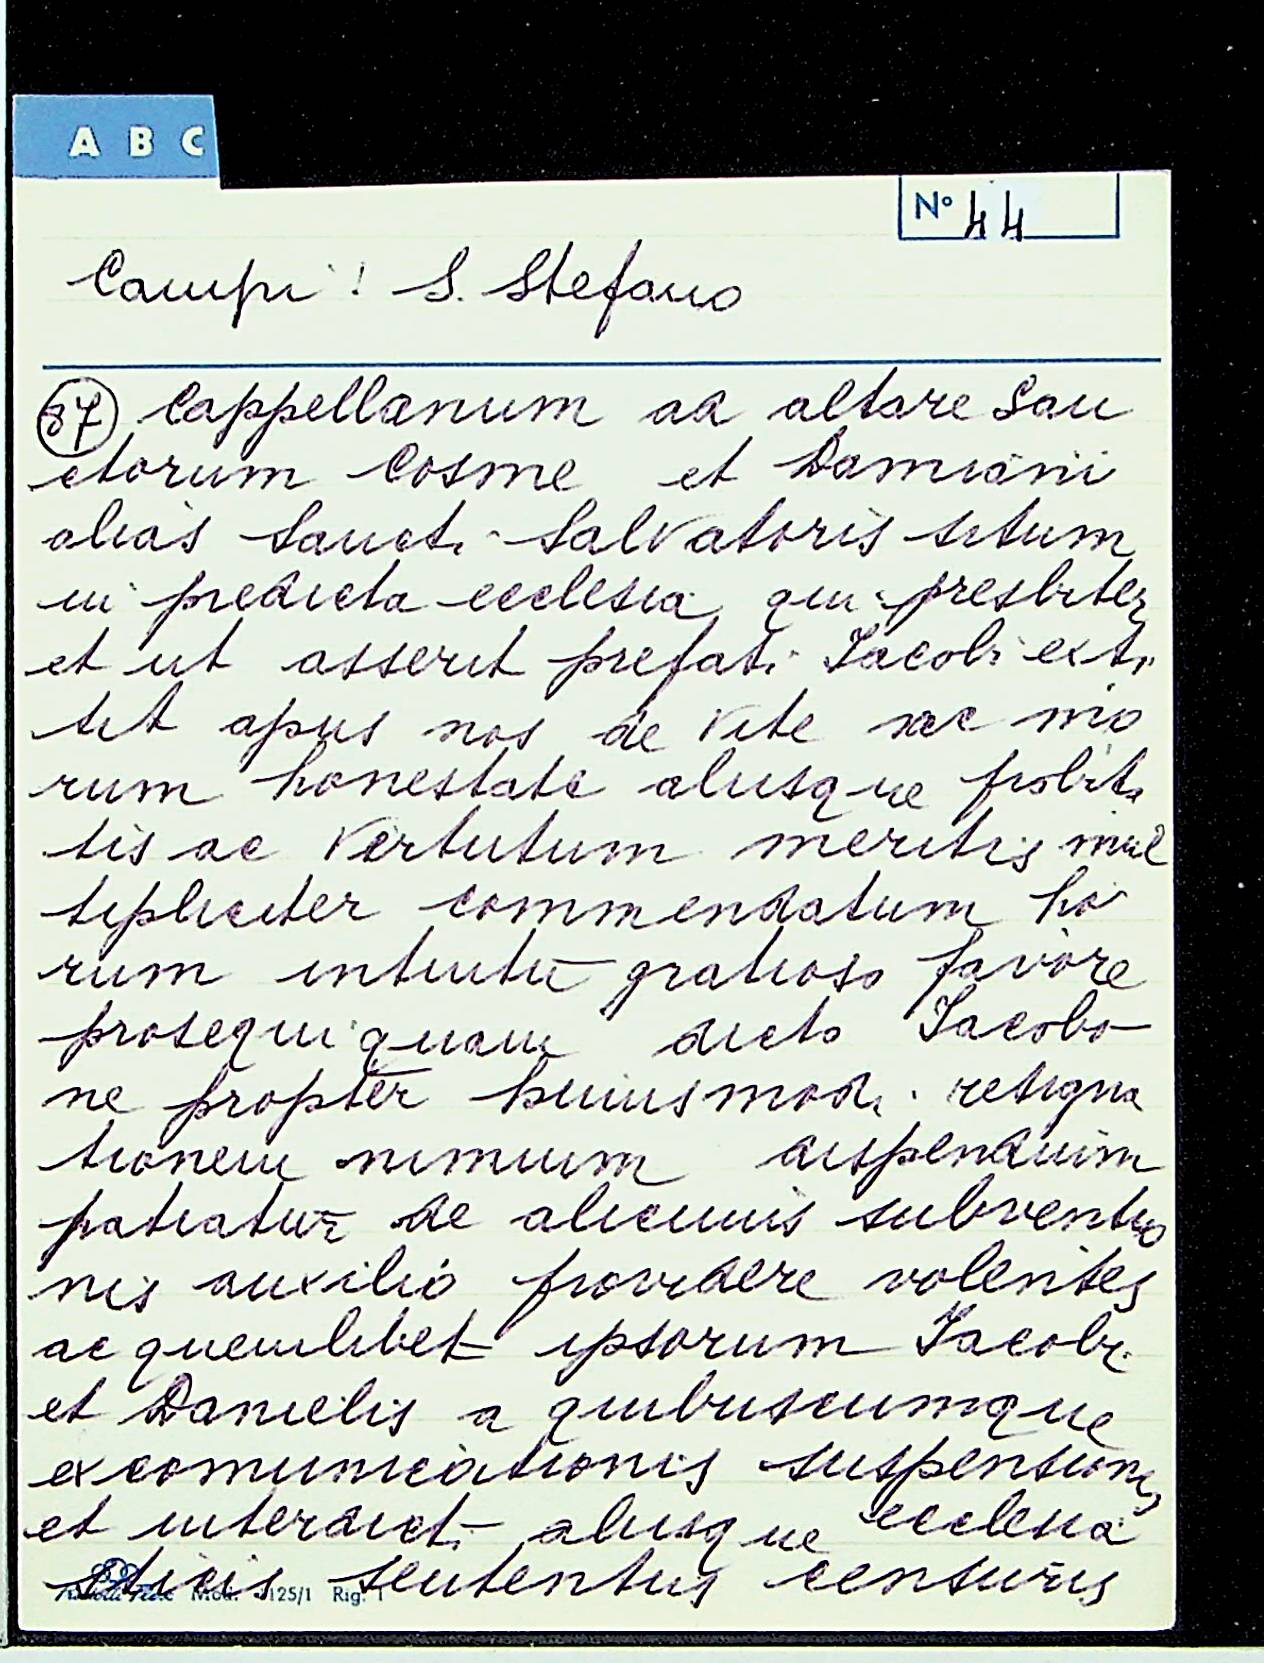 A B C
N° 44
Campi: S. Stefano
37 Cappellanum ad altare San
ctorum Cosme et Damiani
alias Sancti Salvatoris situm
in predicta ecclesia qui presbiter
et ut asserit prefati Iacobi exti
tit apus nos de vite ac mo
rum honestate aliisque probita
tis ac virtutum meritis mul
tipliciter commendatum ho
rum intuitu gratioso favore
prosequi quam dicto Iacobo
ne propter huiusmodi resigna
tionem nimium dispendium
patiatur de alicuius subventio
nis auxilio providere volentes
ac quemlibet ipsorum Iacobi
et Danielis a quibuscumque
excomunicationis suspensionis
et interdicti aliisque ecclesia
sticis sententiis censuris
Mod. 125/1 Rig. 1